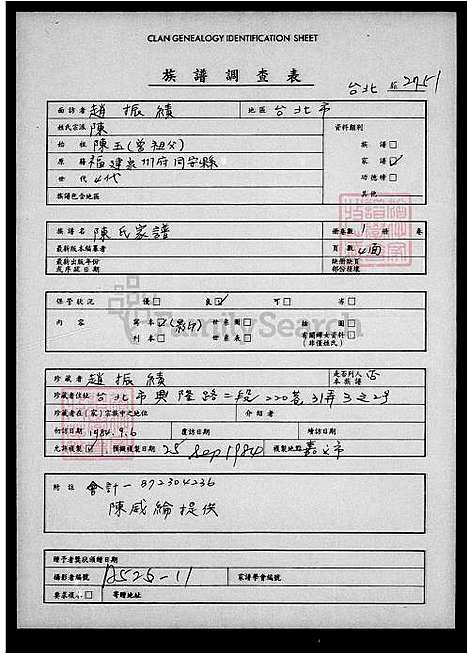 CLAN GENEALOGY IDENTIFICATION SHEET
族譜調查表
台北 2751
面訪者 趙振績 地區 台北市
姓氏宗派 陳 資料類別
始祖 陳玉(曾祖父) 族譜□
原籍 福建泉州府同安縣 家譜☑
世代 4代 功德榜□
族譜包含地區 其他
族譜名 陳氏家譜 冊卷數 1 冊 卷
最新版本編纂者 頁數 4面
最新出版年份或序跋日期 缺冊缺頁部份種環
保管狀況 優□ 良☑ 可□ 劣□
內容 寫本☑(影印) 世系圖□ 插圖□
刊本□ 世系表□ 有關婦女資料□(非僅姓氏)
FamilySearch
珍藏者 趙振績 是否列入本族譜 否
珍藏者住址 台北市興隆路二段220巷31弄3之2号
珍藏者在(家)宗族中之地位 介紹者
初訪日期 1984.9.6 覆訪日期 續訪日期
允許複製☑ 預擬複製日期 25 Sep 1984 複製地點 嘉义市
附註 會計一 872304236
陳威綸提供
贈予者獎狀頒贈日期
攝影者編號 A525-11 家譜學會編號
要求複印□ 寄贈地址